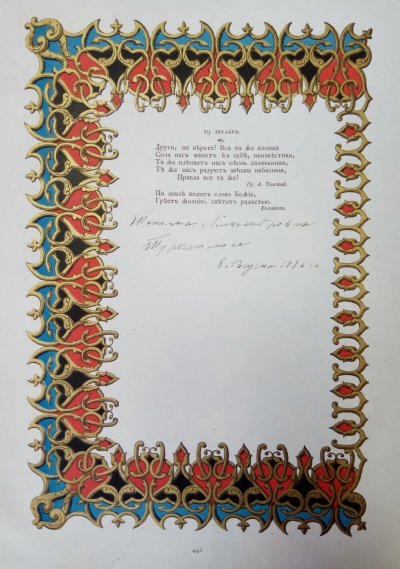 29 ДЕКАБРЯ.
Други, не вѣрьте! Все та же единая
Сила насъ манитъ къ себѣ, неизвѣстная,
Та же плѣняетъ насъ пѣснь соловьиная,
Тѣ же насъ радуютъ звѣзды небесныя,
Правда все та же!
Гр. А. Толстой.
По землѣ ходитъ слово Божіе,
Грѣетъ жизнію, свѣтитъ радостью.
Хомяковъ.
Татьяна
8 Августа 1886 г.